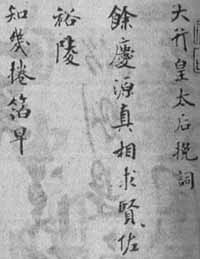 大行皇太后挽詞
餘慶源真相求賢佐
裕陵
知幾捲箔早